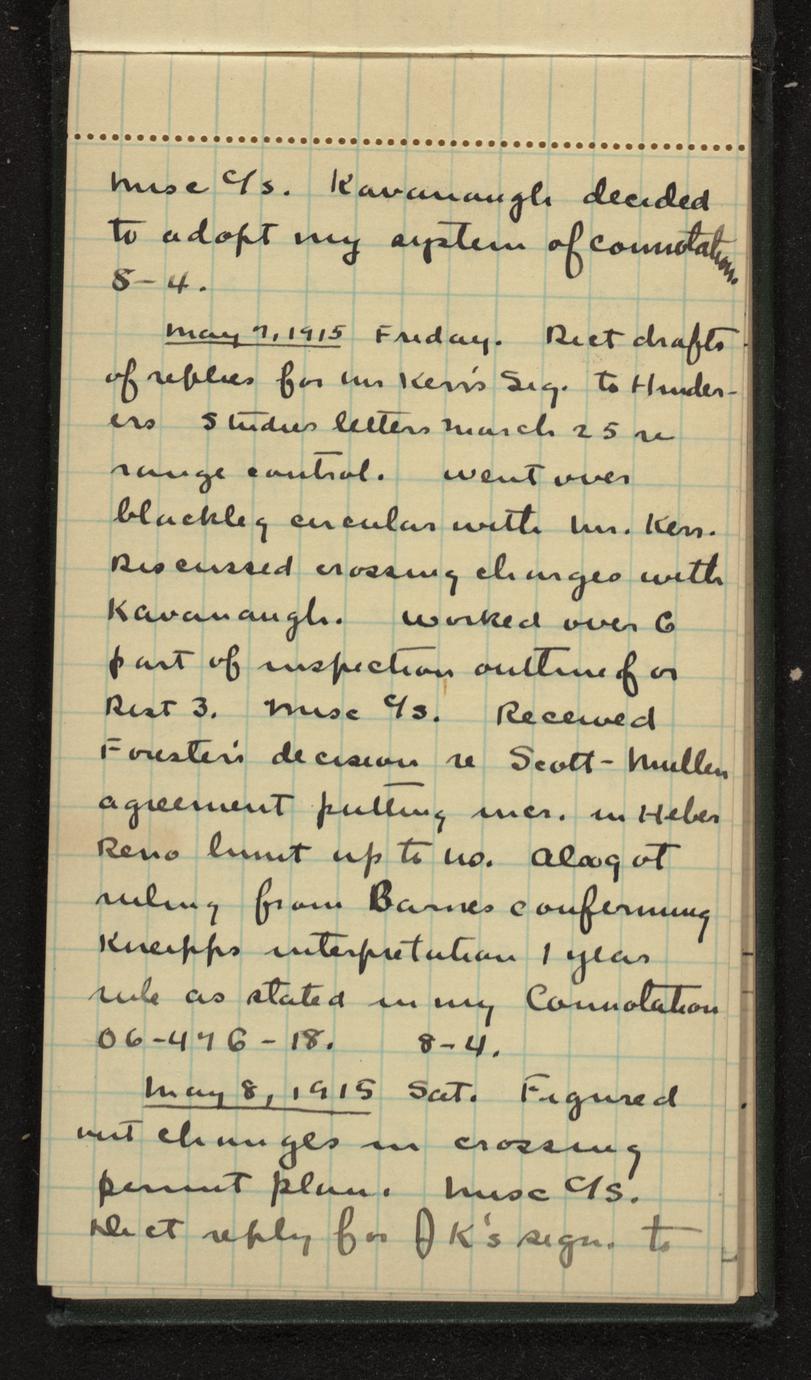 Misc C/s. Kavanaugh decided
to adopt my system of connotation
8-4.
May 7, 1915 Friday. Dict drafts
of replies for Mr Kerr's Sig. to Hinder-
ers Studies letters March 25 re
range control. Went over
blackleg circular with Mr. Kerr.
Discussed crossing charges with
Kavanaugh. Worked over G
part of inspection outline for
Dist 3. Misc C/s. Received
Forester's decision re Scott-Mullen
agreement putting incr. in Heber
Reno limit up to no. Also got
ruling from Barnes confirming
Kneipps interpretation 1 year
rule as stated in my Connotation
06-476-18. 8-4.
May 8, 1915 Sat. Figured
out changes in crossing
permit plan. Misc C/s.
Dict reply for JK's sign. to